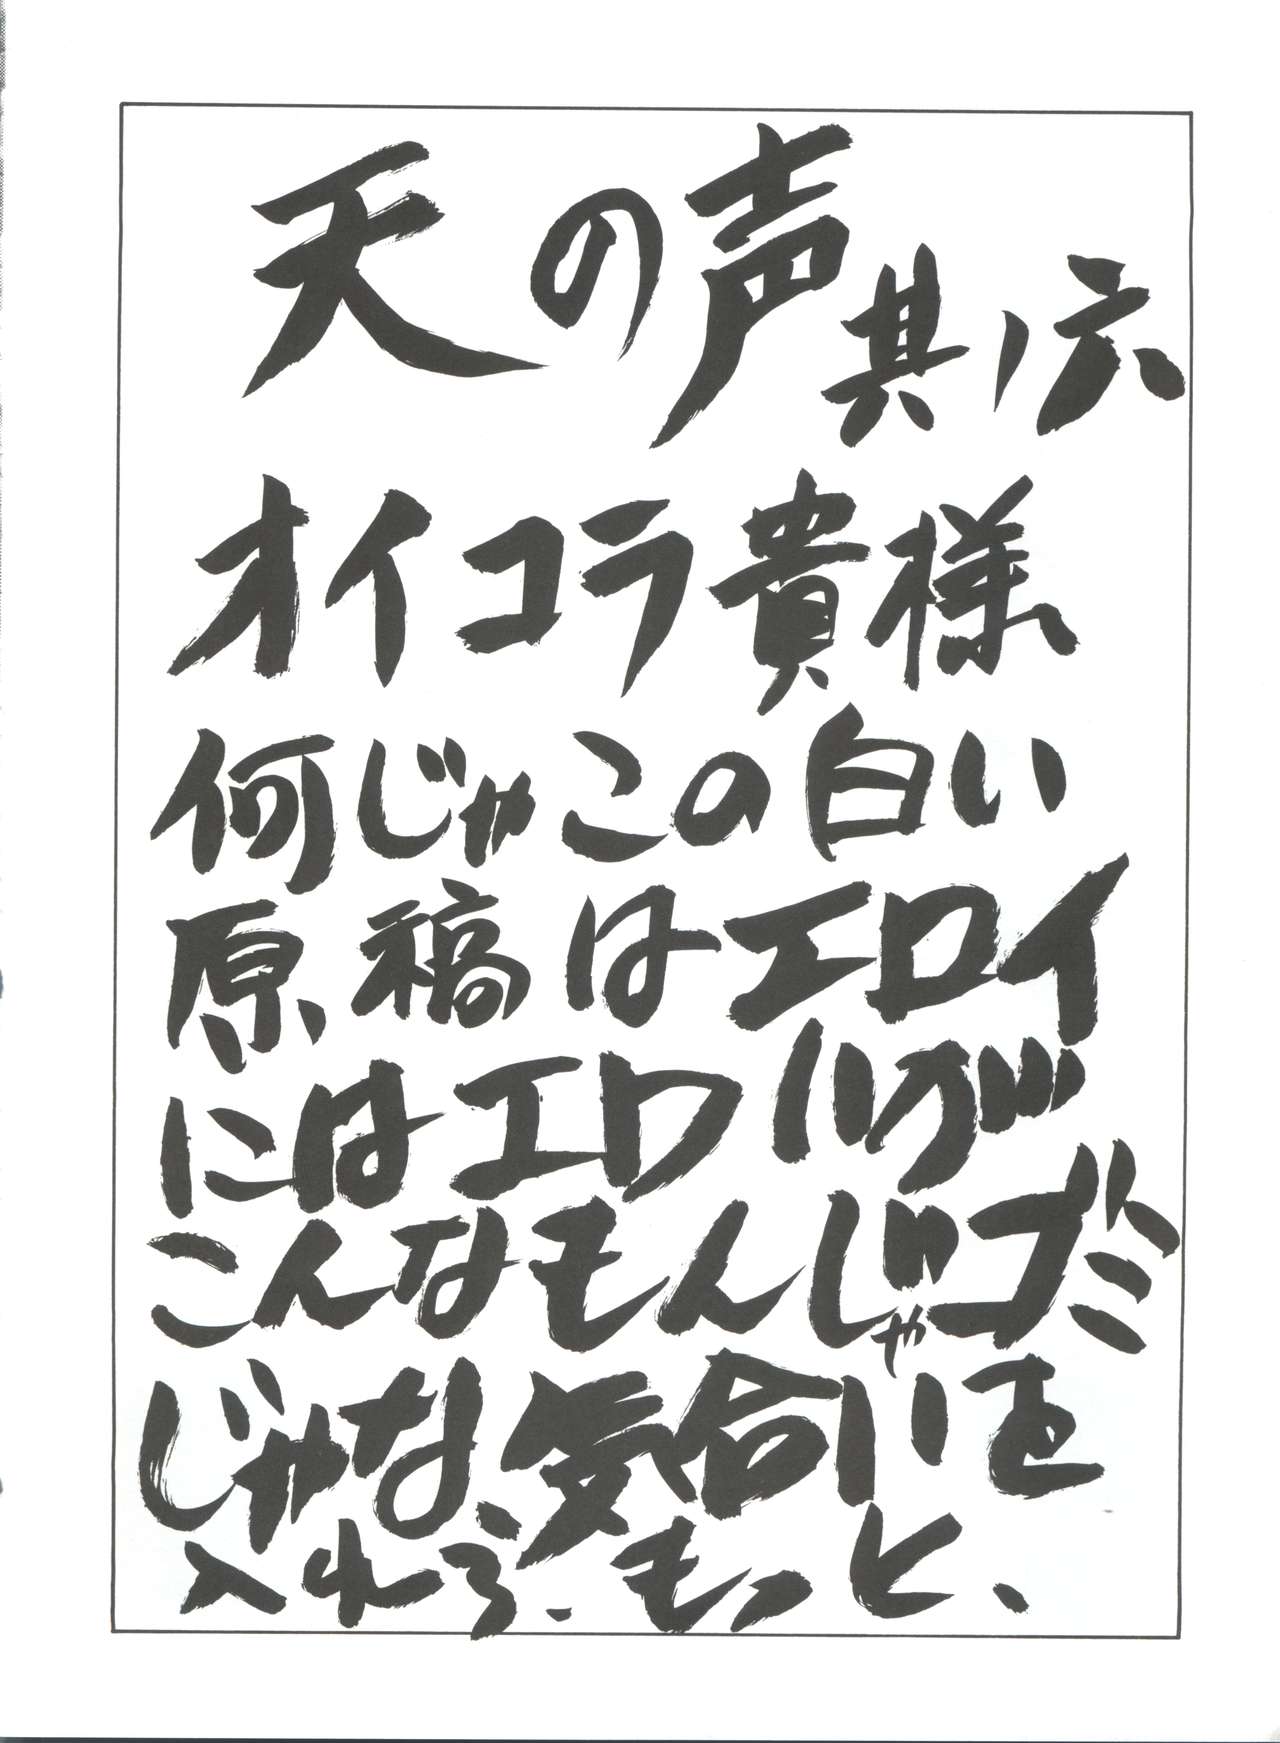 天の声其ノ六
オイコラ貴様
何じゃこの白い
原稿はエロイ
にはエロイが
こんなもんじゃゴミ
じゃな、気合いを
入れろ.もっと、